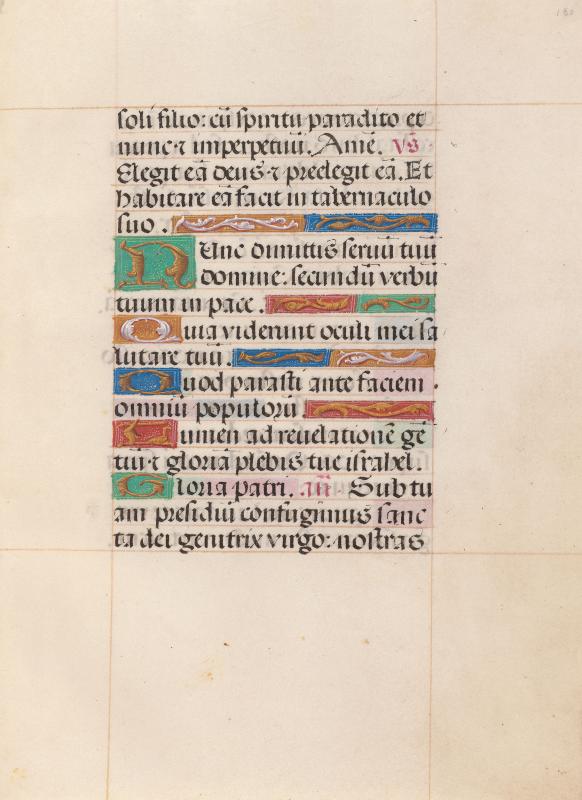 soli filio: cū spiritu paradito et
nunc ⁊ imperpetuū. Amē. vs̄
Elegit eā deus ⁊ preelegit eā. Et
habitare eā facit in tabernaculo
suo.
Nunc dimittis seruū tuū
domine: secundū verbū
tuum in pace.
Quia viderunt oculi mei sa
lutare tuū.
Quod parasti ante faciem
omniū populorū.
Lumen ad reuelationē gē
tiū ⁊ gloriā plebis tue israhel.
Gloria patri. añ. Sub tu
am presidiū confugimus sanc
ta dei genitrix virgo: nostras